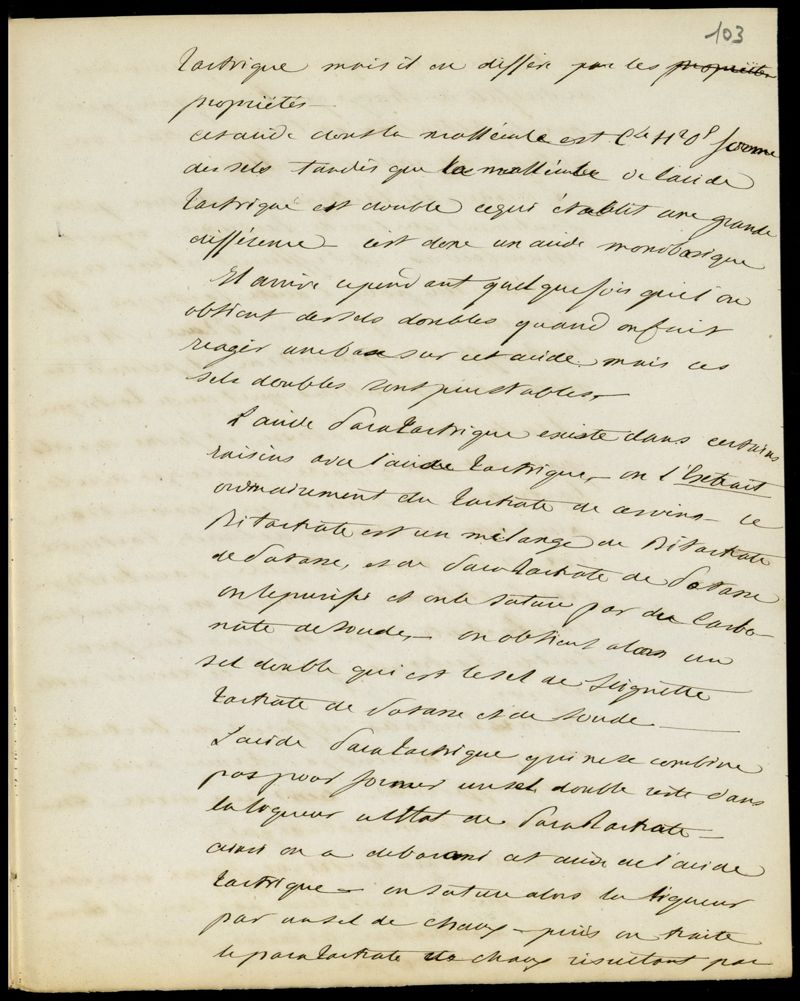 103
tartrique mais il en diffère par les propriétés
propriétés —
cet acide dont la mollécule est C⁴ H²O⁵ forme
des sels tandis que la mollécule de l'acide
tartrique est double ce qui établit une grande
différence — c'est donc un acide monobasique
Il arrive cependant quelquefois que l'on
obtient des sels doubles quand on fait
reagir une base sur cet acide mais ces
sels doubles sont peu stables.
L'acide Paratartrique existe dans certains
raisins avec l'acide tartrique, on l'extrait
ordinairement du tartrate de ces vins — ce
Bitartrate est un mélange de Bitartrate
de Potasse, et de Paratartrate de Potasse
on le purifie et on le sature par du Carbo-
nate de soude, — on obtient alors un
sel double qui est le sel de Seignette
tartrate de Potasse et de Soude —
L'acide Paratartrique qui ne se combine
pas pour former un sel double reste dans
la liqueur a l'état de Paratartrate —
ainsi on a debarassé cet acide de l'acide
tartrique — on sature alors la liqueur
par un sel de chaux — puis on traite
le paratartrate de chaux résultant par